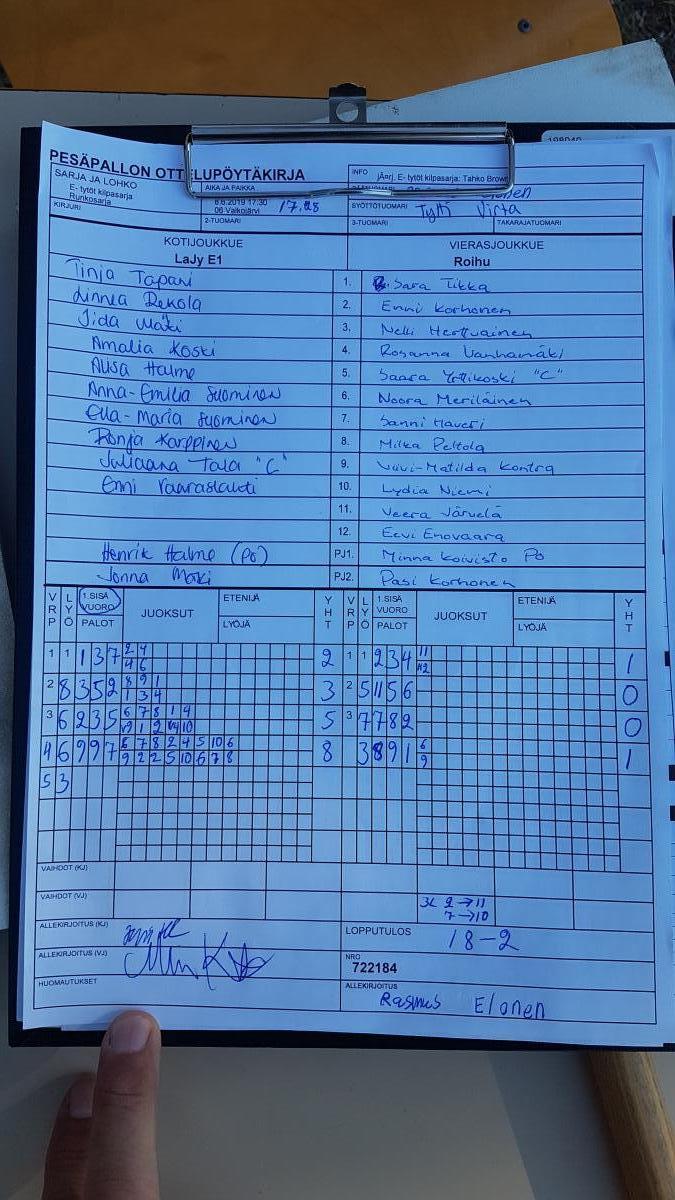 PESÄPALLON OTTELUPÖYTÄKIRJA
SARJA JA LOHKO
E- tytöt kilpasarja
Runkosarja
AIKA JA PAIKKA
6.6.2019 17:30
06 Valkojärvi
17.28
INFO
jÄerj. E- tytöt kilpasarja: Tahko Brown
SYÖTTÖTUOMARI Tytti Virta
KIRJURI
2-TUOMARI
3-TUOMARI
TAKARAJATUOMARI
KOTIJOUKKUE
LaJy E1
VIERASJOUKKUE
Roihu
Tinja Tapani 1. Sara Tikka
Linnea Rekola 2. Enni Korhonen
Iida Mäki 3. Nelli Herttuainen
Amalia Koski 4. Rosanna Vanhamäki
Alisa Halme 5. Saara Yrttikoski "C"
Anna-Emilia Suominen 6. Noora Meriläinen
Ella-Maria Suominen 7. Sanni Haveri
Ronja Karppinen 8. Milka Peltola
Juliaana Tala "C" 9. Viivi-Matilda Kontra
Enni Vaaraslahti 10. Lydia Niemi
11. Veera Järvelä
12. Eevi Enovaara
Henrik Halme (PO) PJ1. Minna Koivisto PO
Jonna Mäki PJ2. Pasi Korhonen
VRP LYÖ 1.SISÄ VUORO PALOT JUOKSUT ETENIJÄ LYÖJÄ YHT VRP LYÖ 1.SISÄ VUORO PALOT JUOKSUT ETENIJÄ LYÖJÄ YHT
1 1 1 3 7 2 4 2 1 1 2 3 4 11 1
4 6 12
2 8 3 5 2 8 9 1 3 2 5 11 5 6 0
1 3 4
3 6 2 3 5 6 7 8 1 4 5 3 7 7 8 2 0
9 1 2 4 10
4 6 9 9 7 6 7 8 2 4 5 10 6 8 3 8 9 1 6 1
9 2 2 5 10 6 7 8 9
5 3
VAIHDOT (KJ)
VAIHDOT (VJ)
3L 2→11
7→10
ALLEKIRJOITUS (KJ)
LOPPUTULOS
18-2
ALLEKIRJOITUS (VJ)
NRO
722184
HUOMAUTUKSET
ALLEKIRJOITUS
Rasmus Elonen